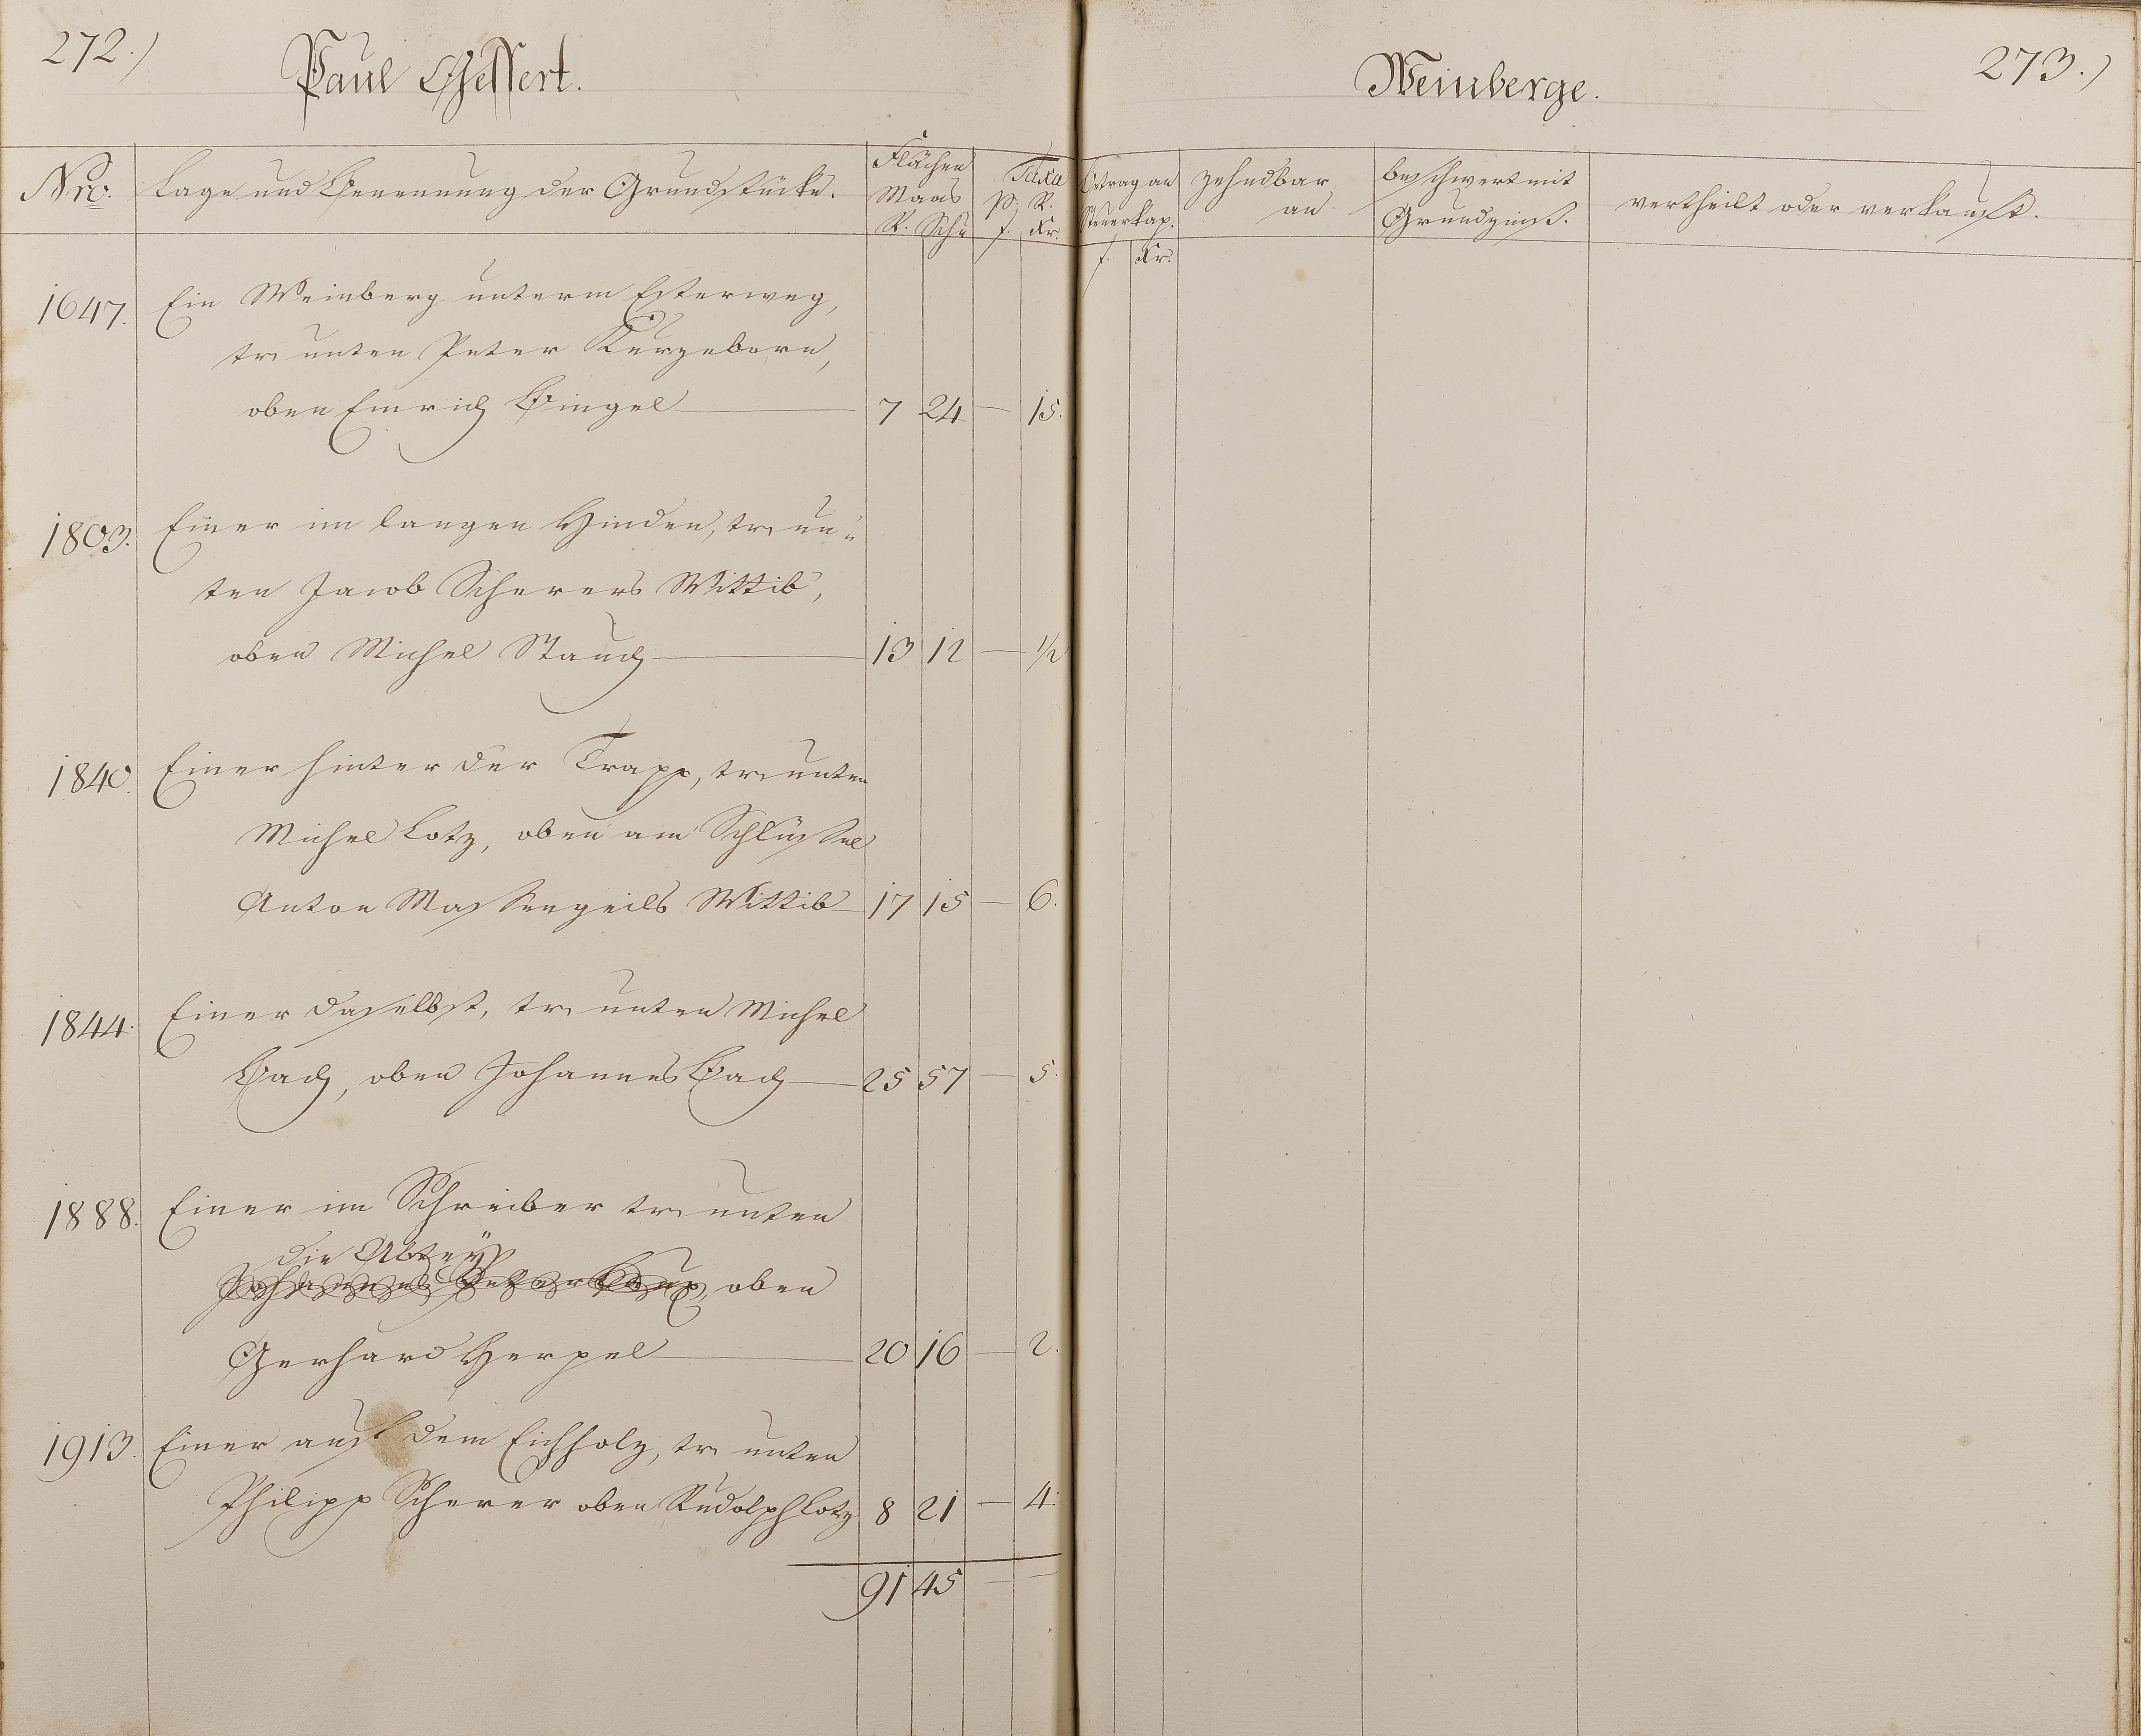 272.)
Paul Gessert.
Weinberge.
273.)
Nro. Lage und Benennung der Grundstücke. Flächen Maas R. Sch Taxa p. R. f. Kr. Betrag an Steuerkap. f. Kr. zehndbar an beschwert mit Grundzinß. vertheilt oder verkauft.
1647. Ein Weinberg unterm Esterweg,
tr unten Peter Kurzeborn,
oben Emrich Bingel 7 24 — 15.
1803. Einer im langen Hinden, tr un-
ten Jacob Scherers Wittib,
oben Michel Stauch 13 12 — 1/2
1840. Einer hinter der Trapp, tr unten
Michel Lotz, oben am Schlüssel
Anton Massengeils Wittib 17 15 — 6.
1844. Einer daselbst, tr unten Michel
Bach, oben Johannes Bach 25 57 — 5.
1888. Einer im Schreiber tr unten
die Abtey
oben
Gerhard Herpel 20 16 — 2.
1913. Einer auf dem Eichholz, tr unten
Philipp Scherer oben Rudolph Lotz 8 21 — 4.
91 45 — —